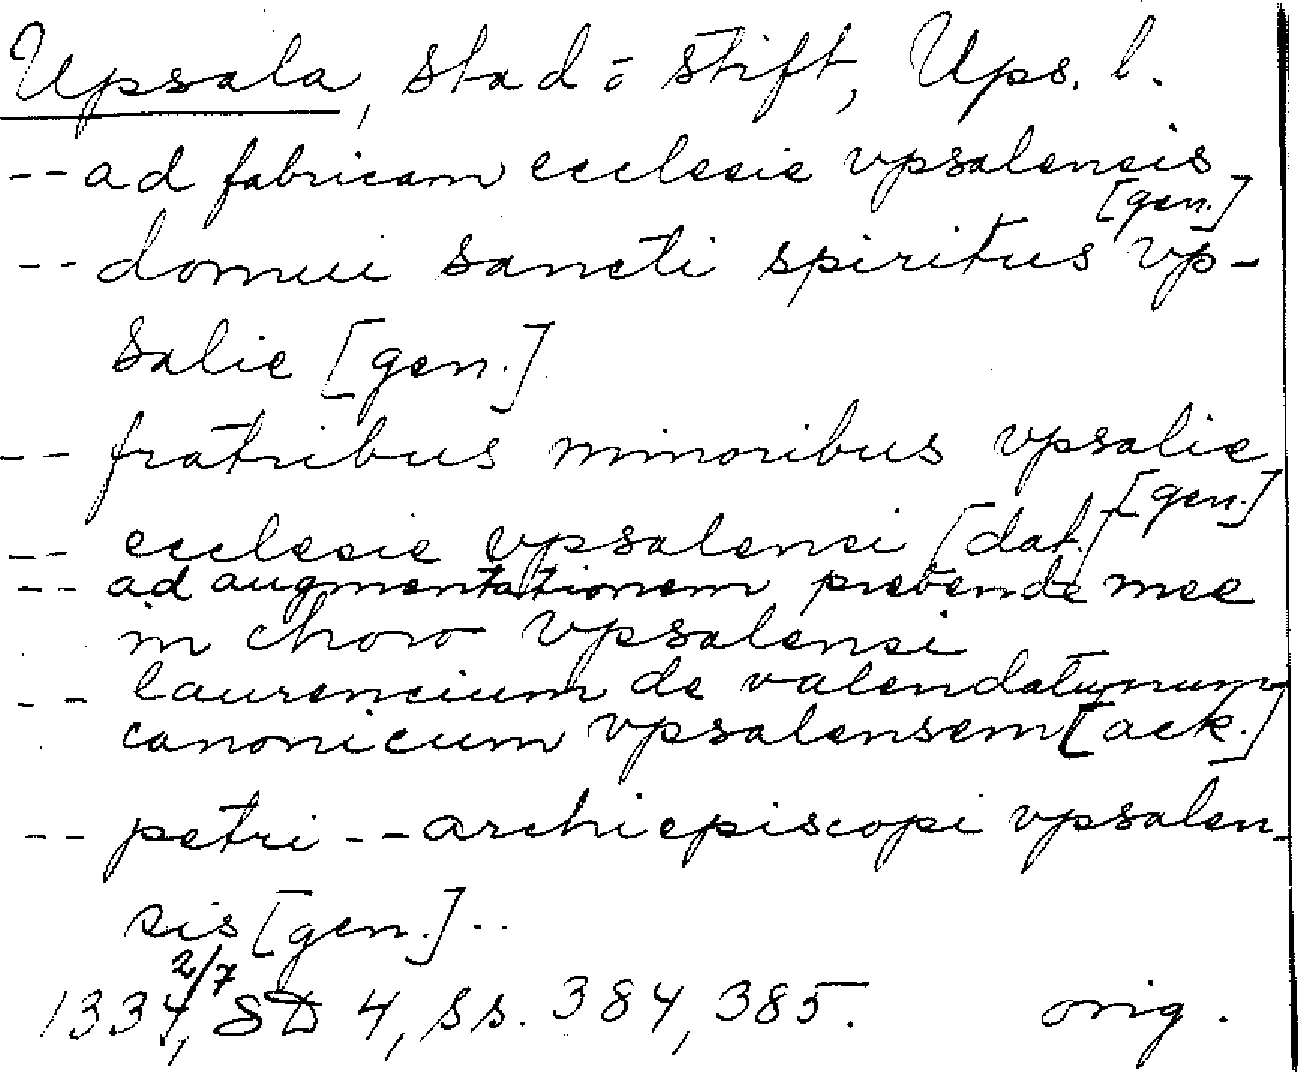 Upsala, stad o stift, Ups. l.
-- ad fabricam ecclesie vpsalensis
[gen.]
-- domui sancti spiritus vp-
salie [gen.]
-- fratribus minoribus vpsalie
[gen.]
-- ecclesie vpsalensi [dat.]
-- ad augmentationem prebende mee
in choro vpsalensi
-- laurencium de valendatunum
canonicum vpsalensem [ack.]
-- petri -- archiepiscopi vpsalen-
sis [gen.] --
1334 2/7, SD 4, ss. 384, 385. orig.